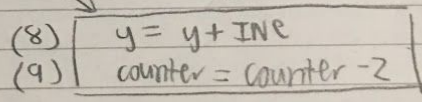 (8) y = y + INe
(9) counter = counter - 2